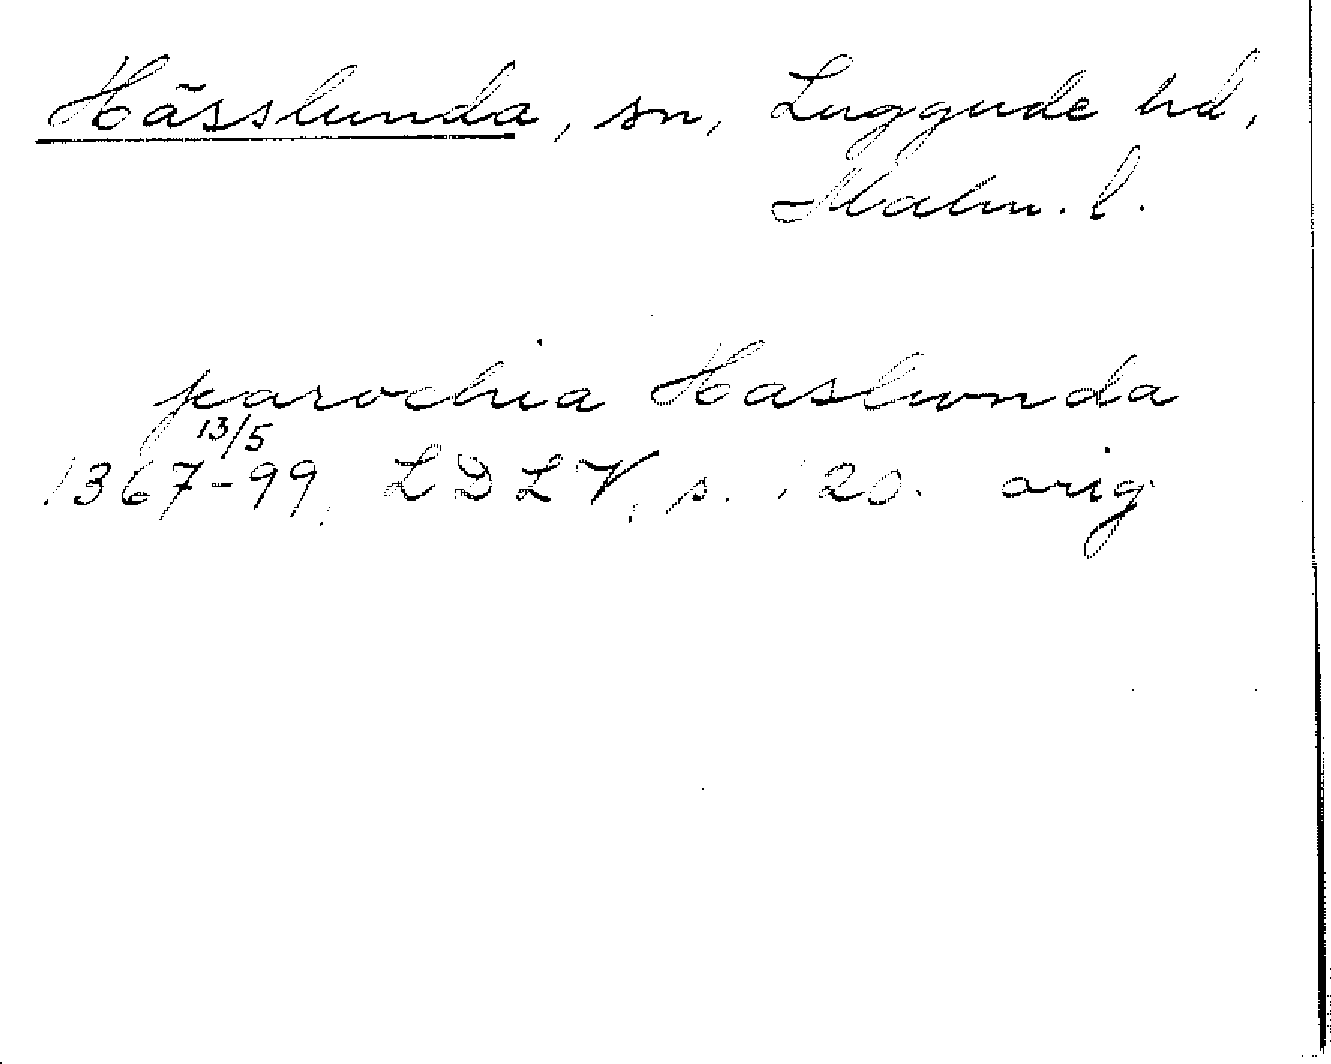 Hässlunda, sn, Luggude hd,
Malm. l.
parochia Haslwnda
13/5
1367-99, LDLV, s. 120. orig